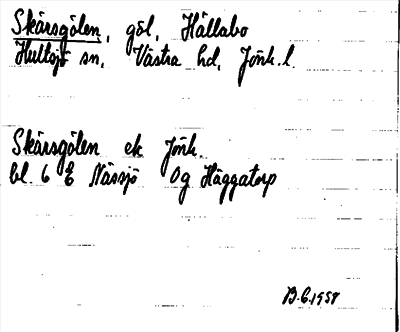 Skärsgölen, göl, Hällabo
Hultsjö sn, Västra hd, Jönk. l.
Skärsgölen ek Jönk.
bl. 6 E Nässjö Og Häggatorp
B.G. 1958